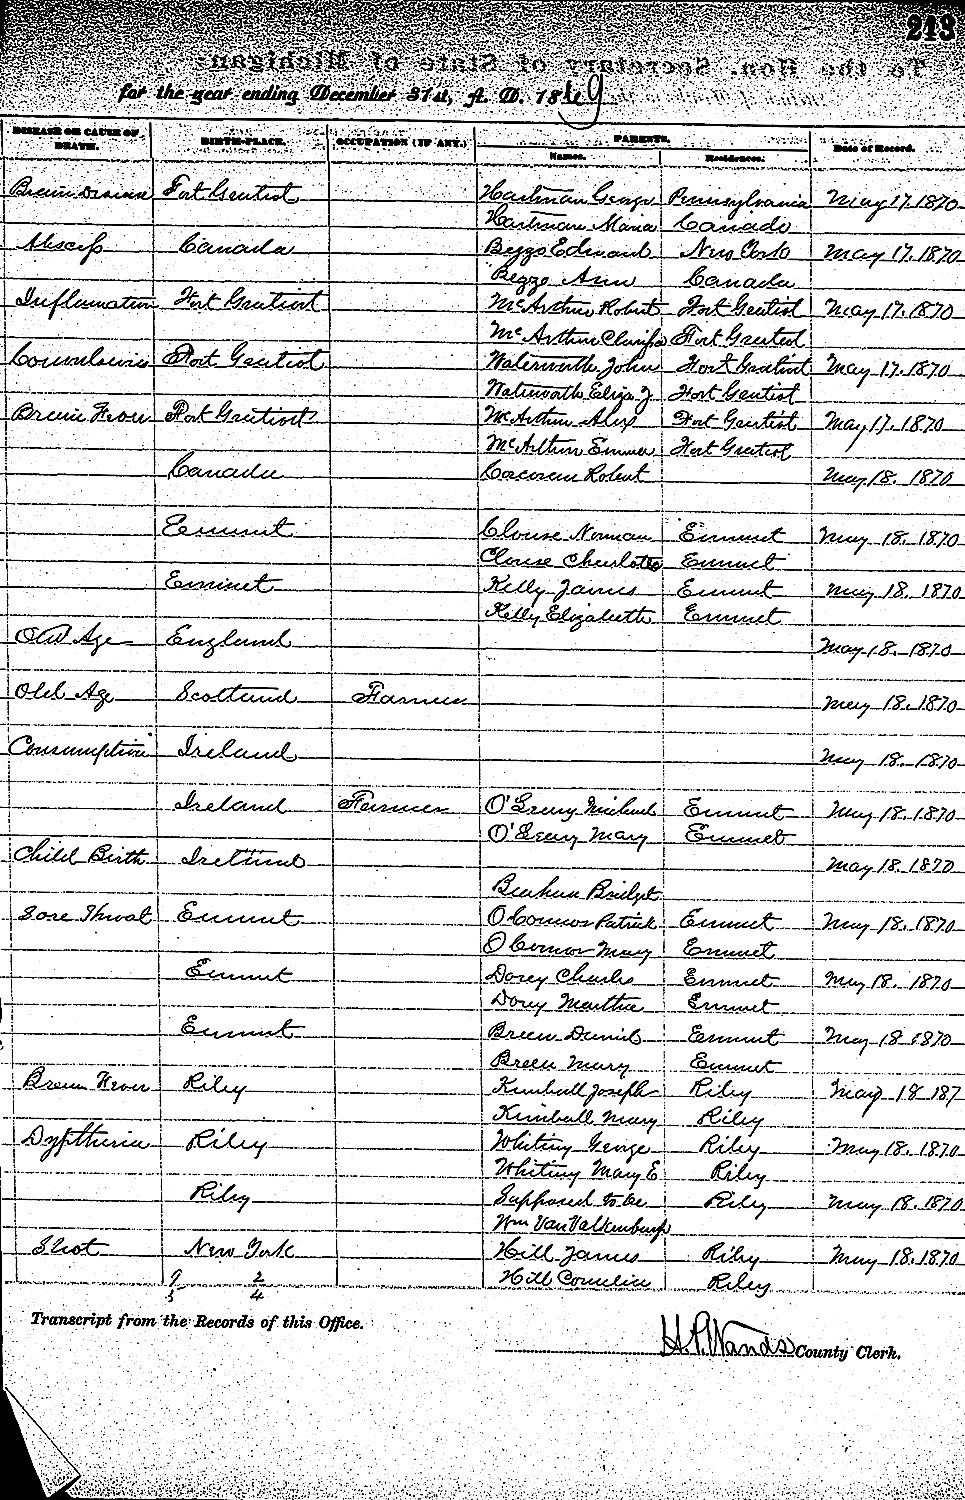 213
To the Hon. Secretary of State of Michigan:
for the year ending December 31st, A. D. 1869
DISEASE OR CAUSE OF DEATH. BIRTH-PLACE. OCCUPATION (IF ANY.) PARENTS. Date of Record.
Names. Residences.
Brain Disease Fort Gratiot Hartman George Pennsylvania May 17. 1870
Hartman Maria Canada
Abscess Canada Beggs Edward New York May 17. 1870
Beggs Ann Canada
Inflamation Fort Gratiot McArthur Robert Fort Gratiot May 17. 1870
McArthur Fort Gratiot
Convulsions Fort Gratiot Waterworth John Fort Gratiot May 17. 1870
Waterworth Eliza J Fort Gratiot
Brain Fever Fort Gratiot McArthur Alex Fort Gratiot May 17. 1870
McArthur Emma Fort Gratiot
Canada Corcoran Robert May 18. 1870
Emmet Clouse Norman Emmet May 18. 1870
Clouse Charlotte Emmet
Emmet Kelly James Emmet May 18. 1870
Kelly Elizabeth Emmet
Old Age England May 18. 1870
Old Age Scotland Farmer May 18. 1870
Consumption Ireland May 18. 1870
Ireland Farmer Michael Emmet May 18. 1870
Mary Emmet
Child Birth Ireland May 18. 1870
Bridget
Sore Throat Emmet O'Connor Patrick Emmet May 18. 1870
O'Connor Mary Emmet
Emmet Dorey Charles Emmet May 18. 1870
Dorey Martha Emmet
Emmet Breen Daniel Emmet May 18 1870
Breen Mary Emmet
Brain Fever Riley Kimball Joseph Riley May 18 187
Kimball Mary Riley
Dyptheria Riley Whitney George Riley May 18. 1870
Whitney Mary E Riley
Riley Supposed to be Riley May 18. 1870
Wm Van Valkenburgh
Shot New York Hill James Riley May 18. 1870
Hill Cornelia Riley
9 2
5 4
Transcript from the Records of this Office.
H.P. Wands County Clerk.